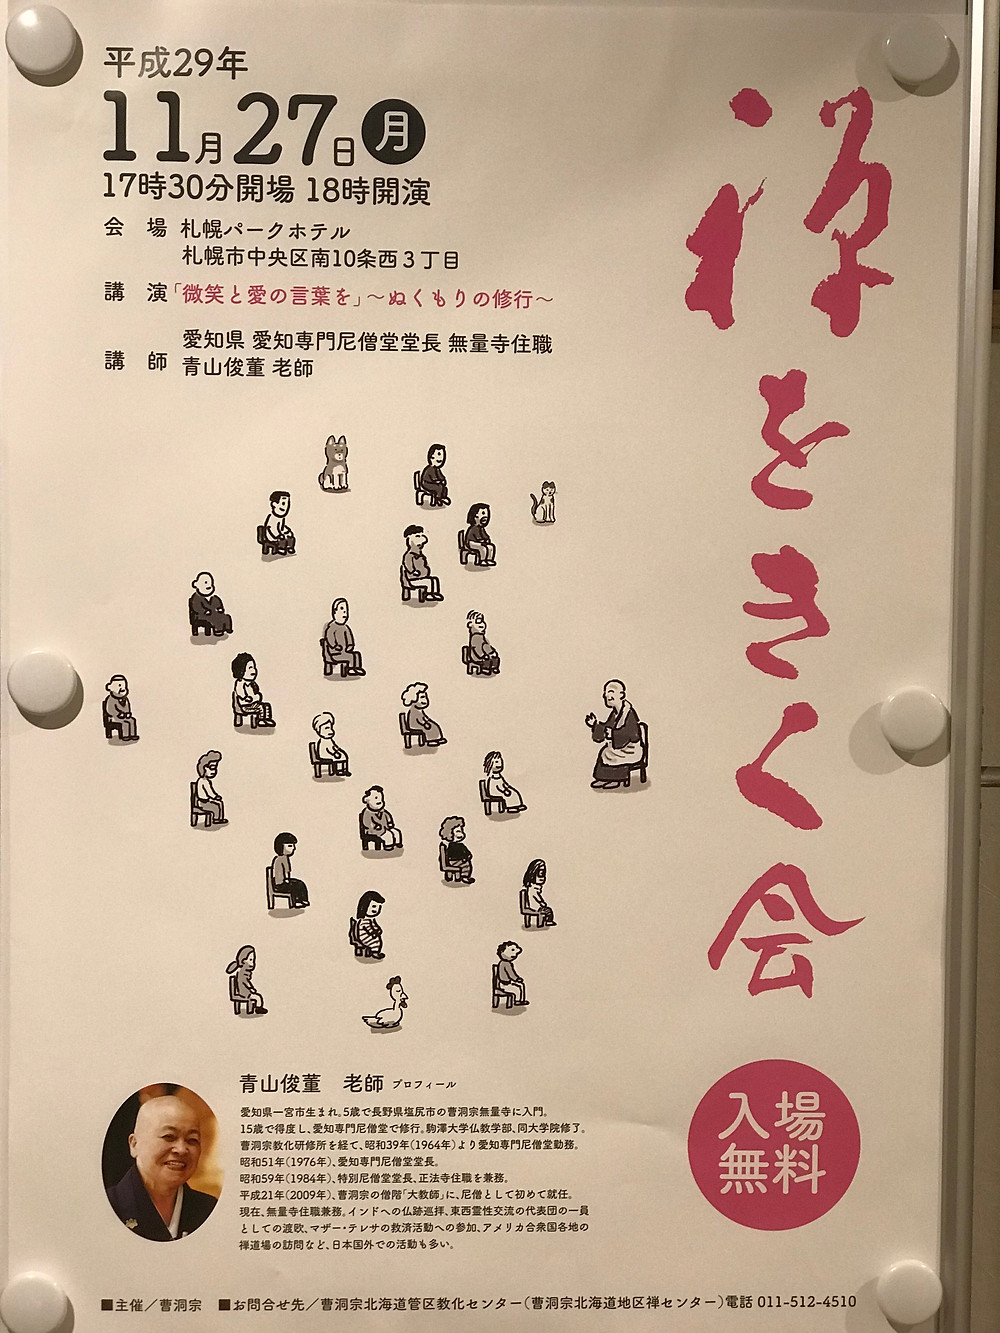 禅をきく会
平成29年
11月27日 月
17時30分開場 18時開演
会　場 札幌パークホテル
札幌市中央区南10条西3丁目
講　演「微笑と愛の言葉を」～ぬくもりの修行～
愛知県 愛知専門尼僧堂堂長 無量寺住職
講　師 青山俊董 老師
青山俊董　老師 プロフィール
愛知県一宮市生まれ。5歳で長野県塩尻市の曹洞宗無量寺に入門。
15歳で得度し、愛知専門尼僧堂で修行。駒澤大学仏教学部、同大学院修了。
曹洞宗教化研修所を経て、昭和39年（1964年）より愛知専門尼僧堂勤務。
昭和51年（1976年）、愛知専門尼僧堂堂長。
昭和59年（1984年）、特別尼僧堂堂長、正法寺住職を兼務。
平成21年（2009年）、曹洞宗の僧階「大教師」に、尼僧として初めて就任。
現在、無量寺住職兼務。インドへの仏跡巡拝、東西霊性交流の代表団の一員
としての渡欧、マザー・テレサの救済活動への参加、アメリカ合衆国各地の
禅道場の訪問など、日本国外での活動も多い。
入場
無料
■主催／曹洞宗　■お問合せ先／曹洞宗北海道管区教化センター（曹洞宗北海道地区禅センター）電話 011-512-4510